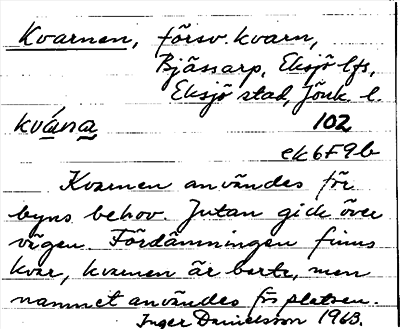 Kvarnen, försv. kvarn,
Bjässarp, Eksjö lfs,
Eksjö stad, Jönk. l.
kvána 102
ek 6F9b
Kvarnen användes för
byns behov. Jutan gick över
vägen. Fördämningen finns
kvar, kvarnen är borta, men
namnet användes för platsen.
Inger Danielsson 1963.